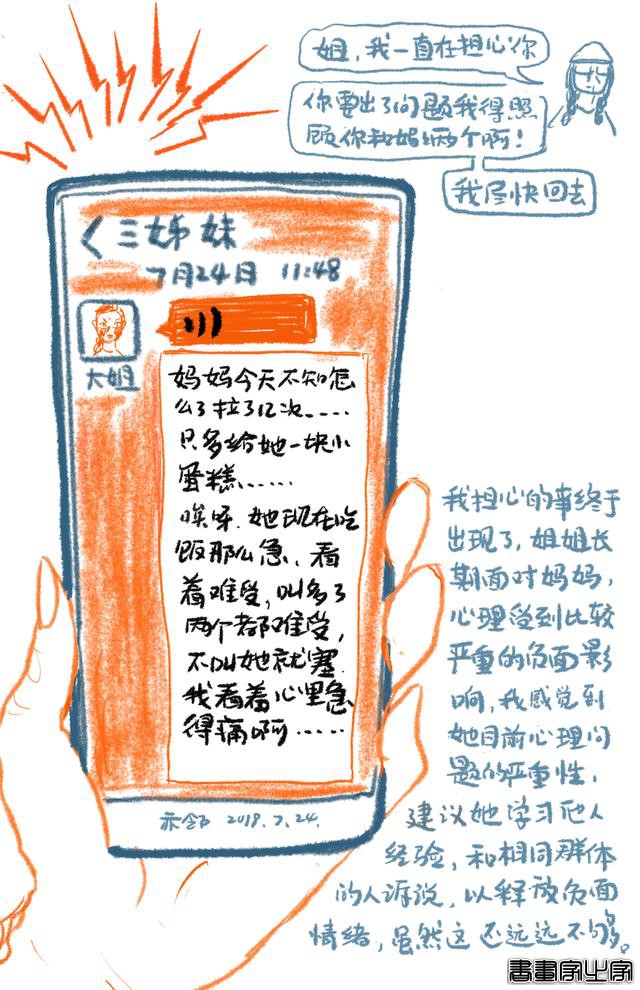 姐，我一直在担心你
你要出了问题我得照
顾你和妈妈两个啊！
我尽快回去
く三姊妹
7月24日 11:48
大姐
妈妈今天不知怎
么了拉了12次……
只多给她一块小
蛋糕……
唉呀，她现在吃
饭那么急、看
着难受，叫多了
两个都难受，
不叫她就塞.
我看着心里急
得痛啊……
2018.7.24.
我担心的事终于
出现了，姐姐长
期面对妈妈，
心理受到比较
严重的负面影
响，我感觉到
她目前心理问
题的严重性，
建议她学习他人
经验，和相同群体
的人诉说，以释放负面
情绪，虽然这还远远不够。
書畫家出字